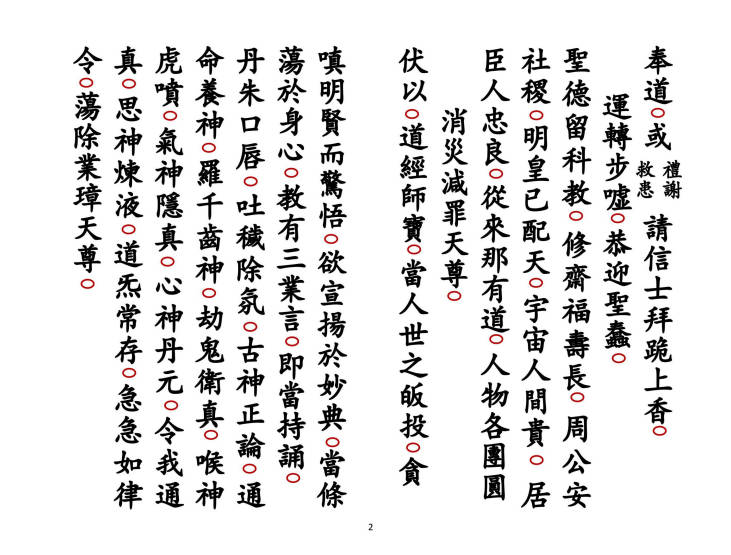 奉道○或禮謝救患請信士拜跪上香○
運轉步噓○恭迎聖蠢○
聖德留科教○修齋福壽長○周公安
社稷○明皇已配天○宇宙人間貴○居
臣人忠良○從來那有道○人物各團圓
消災減罪天尊○
伏以○道經師寶○當人世之皈投○貪
嗔明賢而驚悟○欲宣揚於妙典○當條
蕩於身心○教有三業言○即當持誦○
丹朱口唇○吐穢除氛○古神正論○通
命養神○羅千齒神○劫鬼衛真○喉神
虎噴○氣神隱真○心神丹元○令我通
真○思神煉液○道炁常存○急急如律
令○蕩除業璋天尊○
2